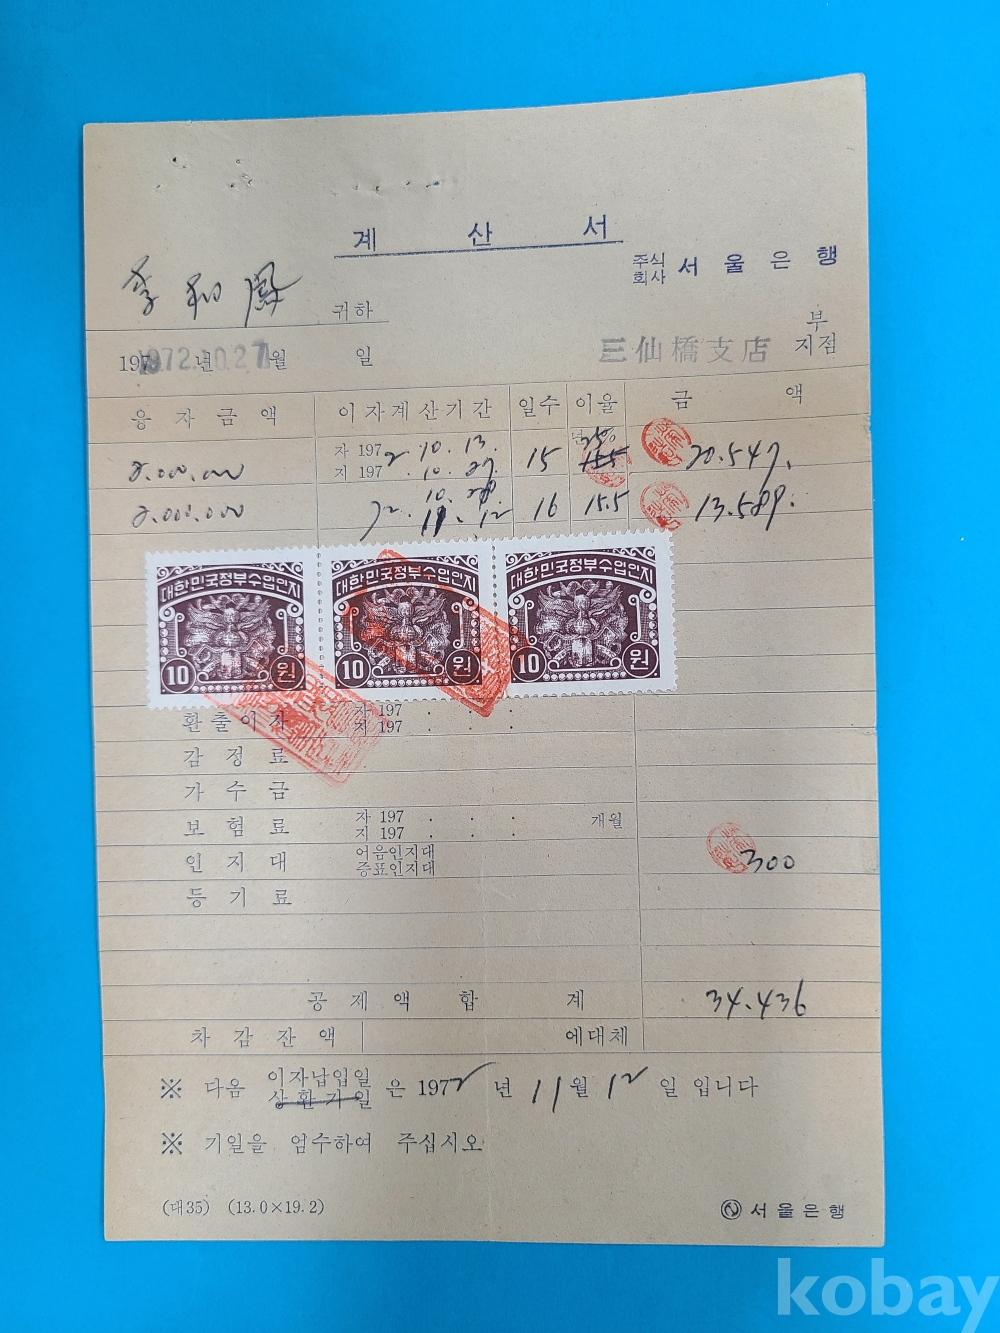 계 산 서
주식회사 서울은행
李和鳳 귀하
부
1972.10.27 년 월 일 三仙橋支店 지점
융자금액 이자계산기간 일수 이율 금액
2.000.000 자 1972. 10. 13. 지 1972. 10. 27. 15 년 25% 15.5 20.547.
2.000.000 72. 10. 28 11. 12 16 15.5 13.589.
대한민국정부수입인지 대한민국정부수입인지 대한민국정부수입인지
10 원 10 원 10 원
환출이자 자 197 . . . 지 197 . . .
감정료
가수금
보험료 자 197 . . . 지 197 . . . 개월
인지대 어음인지대 증표인지대 300
등기료
공제액합계 34.436
차감잔액 에대체
※ 다음 이자납입일 상환기일 은 1972년 11월 12일 입니다
※ 기일을 엄수하여 주십시오
(대35) (13.0×19.2) 서울은행
kobay